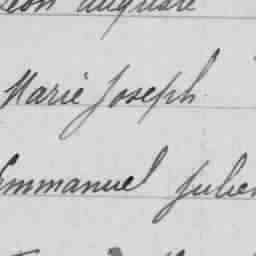 Léon Auguste
Marie Joseph
Emmanuel Julien